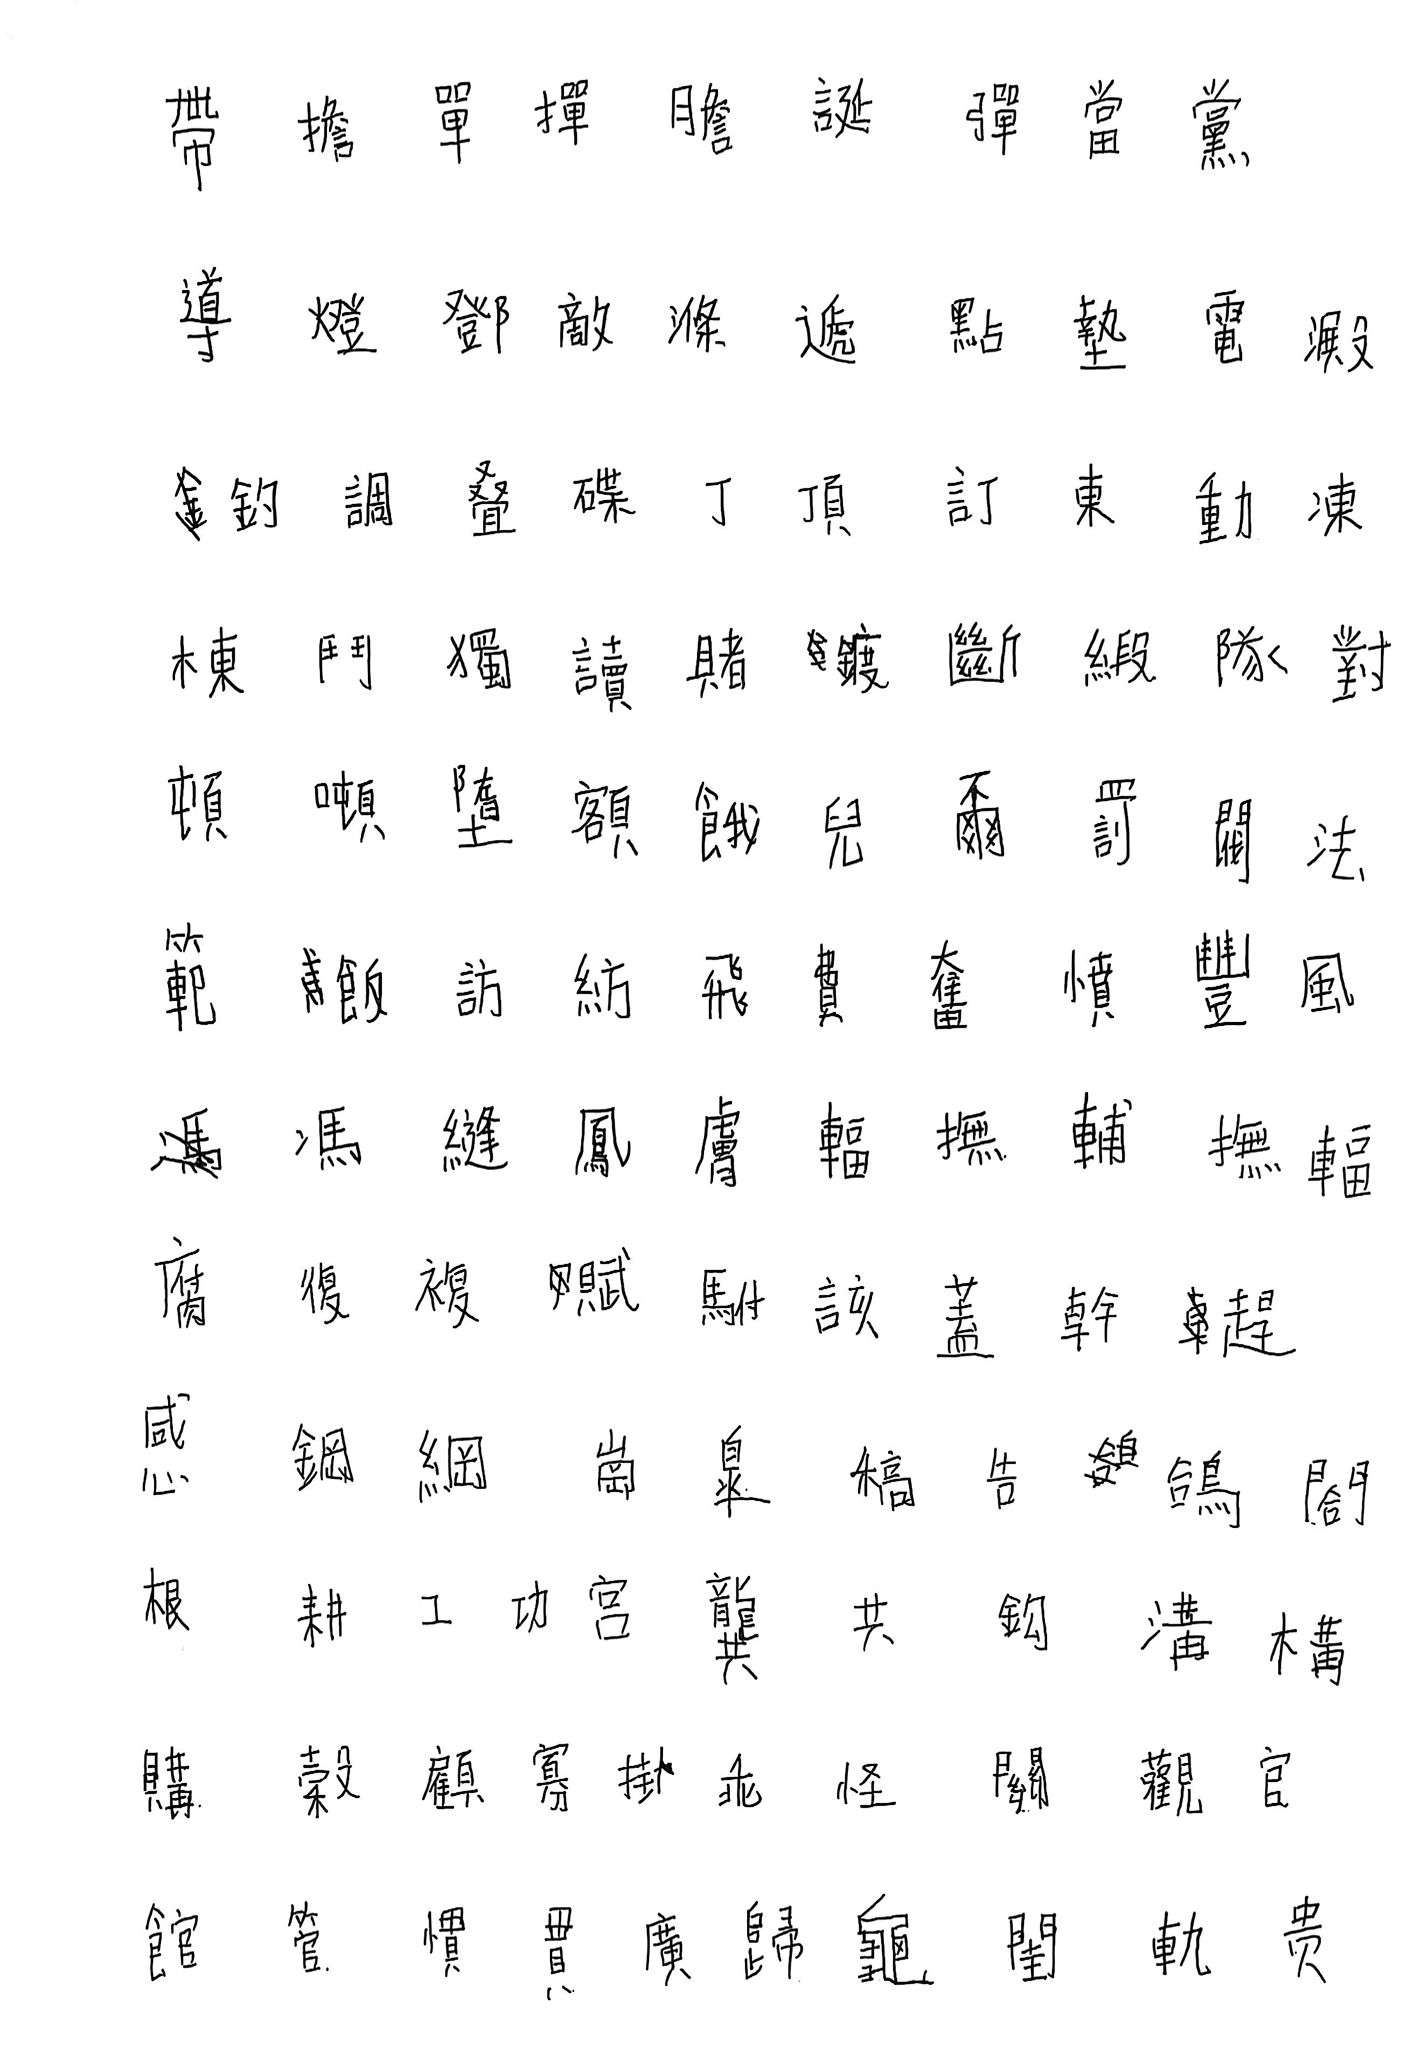 帶 擔 單 撣 膽 誕 彈 當 黨
導 燈 鄧 敵 滌 遞 點 墊 電 澱
釣 調 疊 碟 丁 頂 訂 東 動 凍
棟 鬥 獨 讀 賭 鍍 斷 緞 隊 對
頓 噸 墮 額 餓 兒 爾 罰 閥 法
範 飯 訪 紡 飛 費 奮 憤 豐 風
馮 縫 鳳 膚 輻 撫 輔 撫 輻
腐 復 複 賦 駙 該 蓋 幹 趕
感 鋼 綱 崗 皋 稿 告 鴿 閤
根 耕 工 功 宮 龔 共 鈎 溝 構
購 穀 顧 寡 掛 乖 怪 關 觀 官
館 管 慣 貫 廣 歸 龜 閨 軌 贵